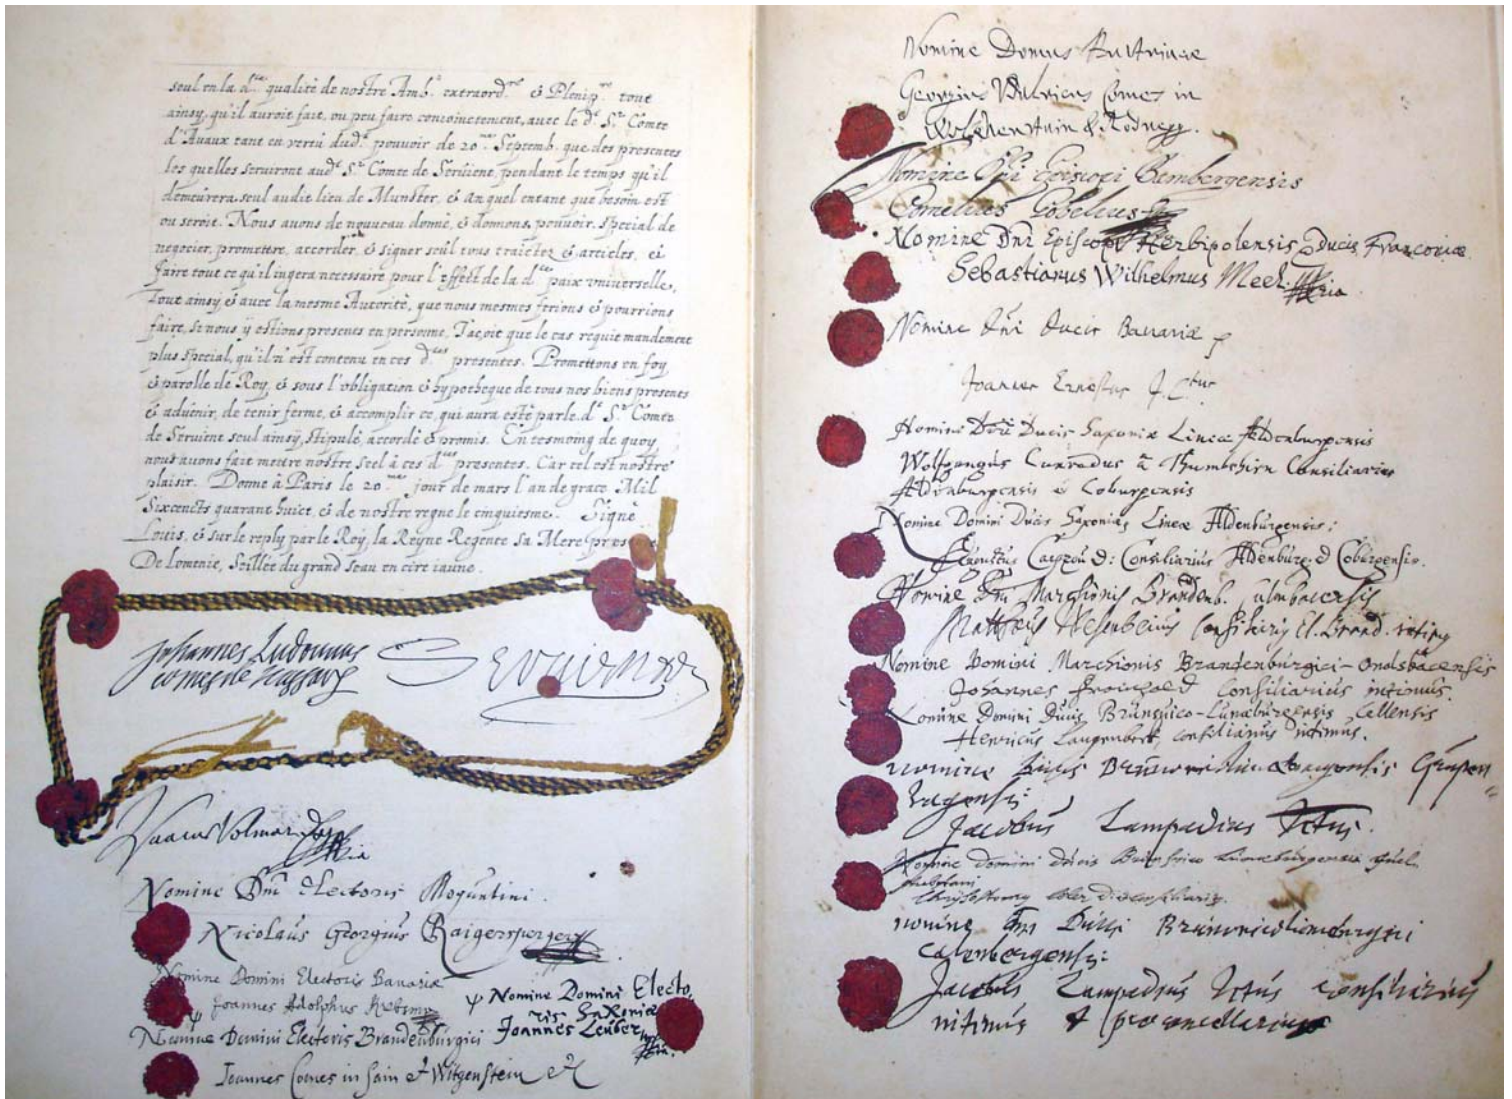 seul en la d.te qualité de nostre Amb.r extraord.re & Plenip.re tout
ainsy, qu'il auroit fait, ou peu faire conioinctement, avec le d.t S.r Comte
d'Avaux tant en vertu dud.t pouvoir de 20.me Septemb. que des presentes
les quelles serviront aud.t S.r Comte de Serviene, pendant le temps qu'il
demeurera seul audit lieu de Munster, & Auquel entant que besoin est
ou seroit. Nous avons de nouveau donné, & donnons, pouvoir, special de
negocier, promettre, accorder, & signer seul tous traictez & articles, &
faire tout ce qu'il iugera necessaire pour l'effect de la d.te paix vniverselle,
Tout ainsy & avec la mesme Autorité, que nous mesmes ferions & pourrions
faire, si nous y estions presenes en personne, Iaçoit que le cas requit mandement
plus special, qu'il n'est contenu en ces d.tes presentes. Promettons en foy
& parolle de Roy, & sous l'obligation & hypotheque de tous nos biens presenes
& advenir, de tenir ferme, & accomplir ce, qui aura esté par le d.t S.r Comte
de Servient seul ainsy, stipulé, accordé & promis. En tesmoing de quoy
nous avons fait mettre nostre seel à ces d.tes presentes. Car tel est nostre
plaisir. Donné à Paris le 20.me jour de mars l'an de grace Mil
Sixcents quarant huict, & de nostre regne le cinquiesme. Signé
Louis, & sur le reply par le Roy, la Reyne Regente sa Mere
De Lomenie, Scillée du grand seau en cire iaune.
Johannes Ludovicus Servient
comes de Nassau
Isaacus Volmar
Nomine Dni Electoris Moguntini.
Nicolaus Georgius Raigersperger
Nomine Domini Electoris Bavariæ
Joannes Adolphus
Nomine Domini Electo
ris Saxoniæ
Joannes Leuber
Nomine Domini Electoris Brandenburgici
Joannes Comes in Sain & Witgenstein
Nomine Domus Austriacæ
Georgius Vlricus Comes in
Wolkenstain & Rodnegg.
Nomine Dni Episcopi Bambergensis
Cornelius Gobelius
Nomine Dni Episcopi Herbipolensis Ducis Franconiæ
Sebastianus Wilhelmus Meel
Nomine Dni Ducis Bavariæ
Joannes Ernestus J.Ctus
Nomine Dni Ducis Saxoniæ Lineæ Aldenburgensis
Wolfgangus Cunradus à Thumbshirn Consiliarius
Aldenburgensis & Coburgensis
Nomine Domini Ducis Saxoniæ Lineæ Aldenburgensis:
Augustus Carpzou D: Consiliarius Aldenburg. & Coburgensis.
Nomine Dni Marchionis Brandenb. Culmbacensis
Matthæus Wesenbecius Consiliarius El. Brand. intimus
Nomine Domini Marchionis Brandenburgici-Onolsbacensis
Johannes Fromhold Consiliarius intimus
Nomine Domini Ducis Brunsuico-Luneburgensis Cellensis
Henricus Langenbeck, consiliarius intimus.
nomine Ducis Grupen
hagensis:
Jacobus Lampadius JCtus.
Nomine Domini Ducis Luneburgensis
nomine Dni Ducis
Calenbergensis:
Jacobus Lampadius JCtus consiliarius
intimus & procancellarius